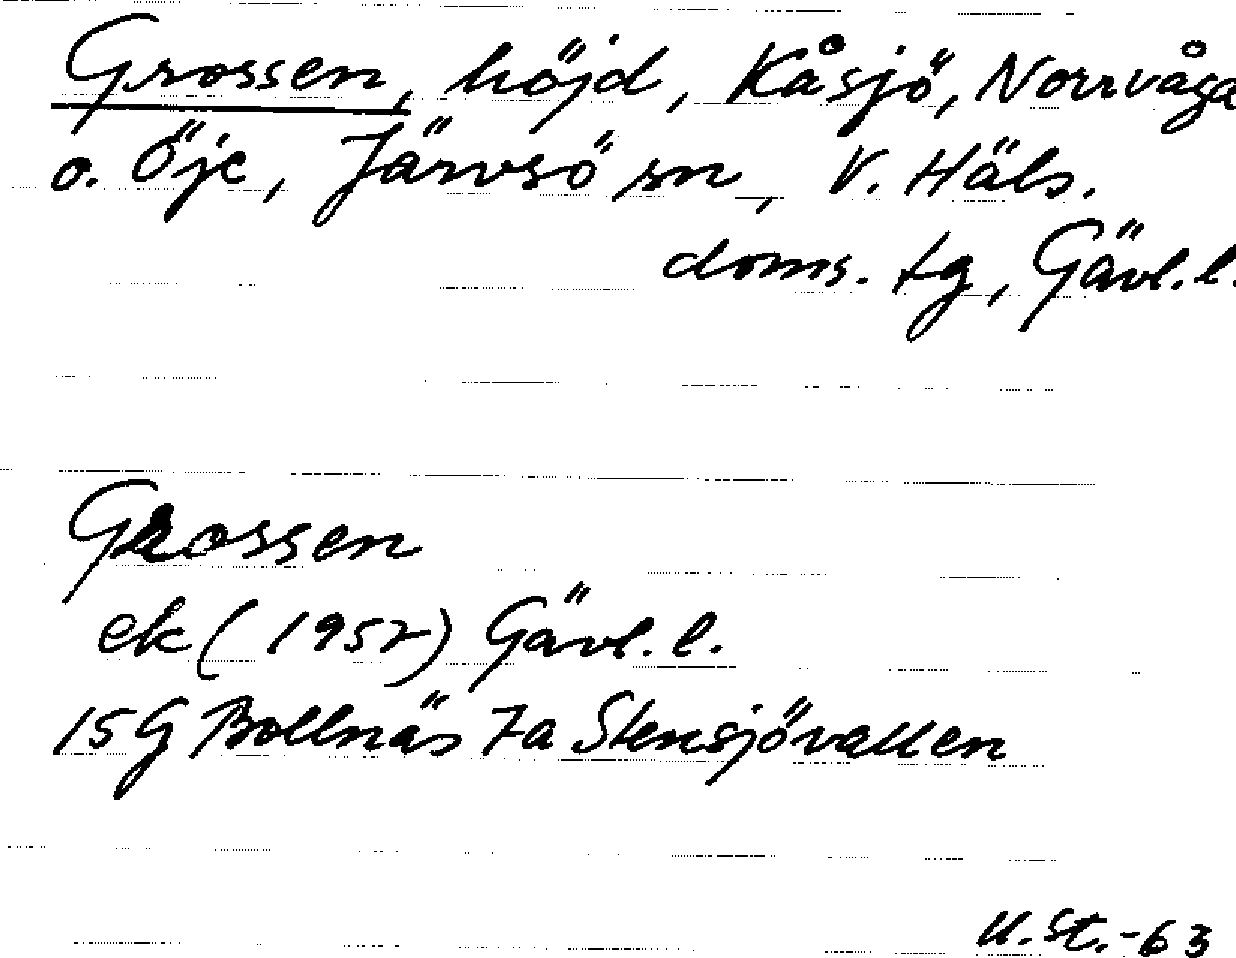 Grossen, höjd, Kåsjö, Norrvåga
o. Öje, Järvsö sn, V. Häls.
doms. tg, Gävl. l.
Grossen
ek (1952) Gävl. l.
15G Bollnäs 7a Stensjövallen
U. St. -63